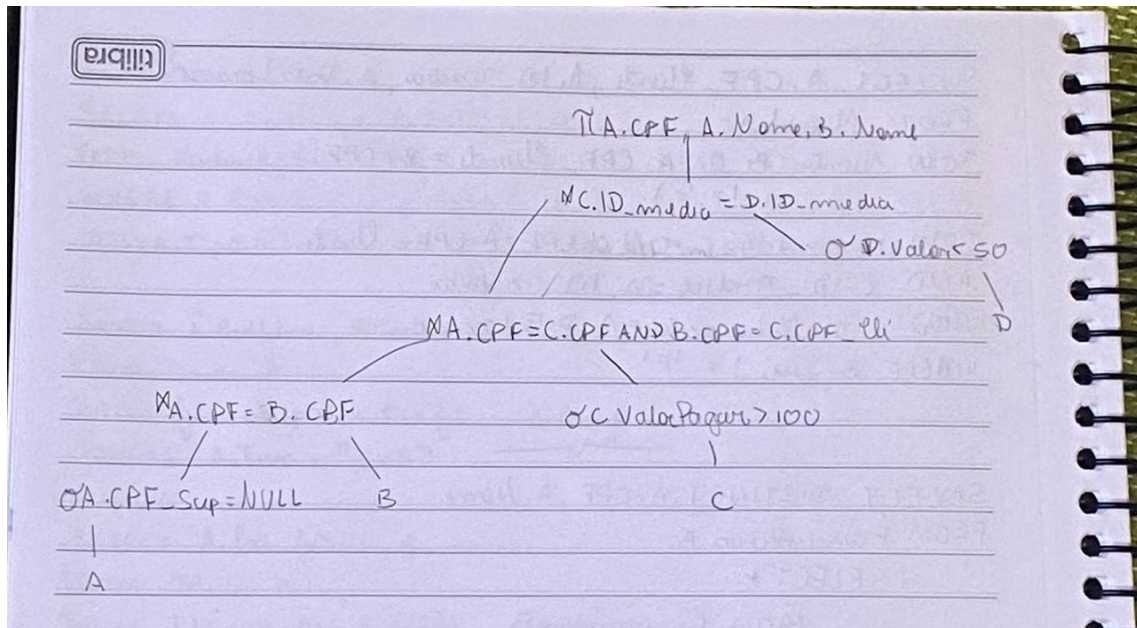 tilibra
π A.CPF, A.Nome, B.Nome
⋈ C.ID_media = D.ID_media
σ D.Valor < 50
D
⋈ A.CPF = C.CPF AND B.CPF = C.CPF_Cli
⋈ A.CPF = B.CPF
σ C ValorPagar > 100
σ A.CPF_Sup = NULL
B
C
A